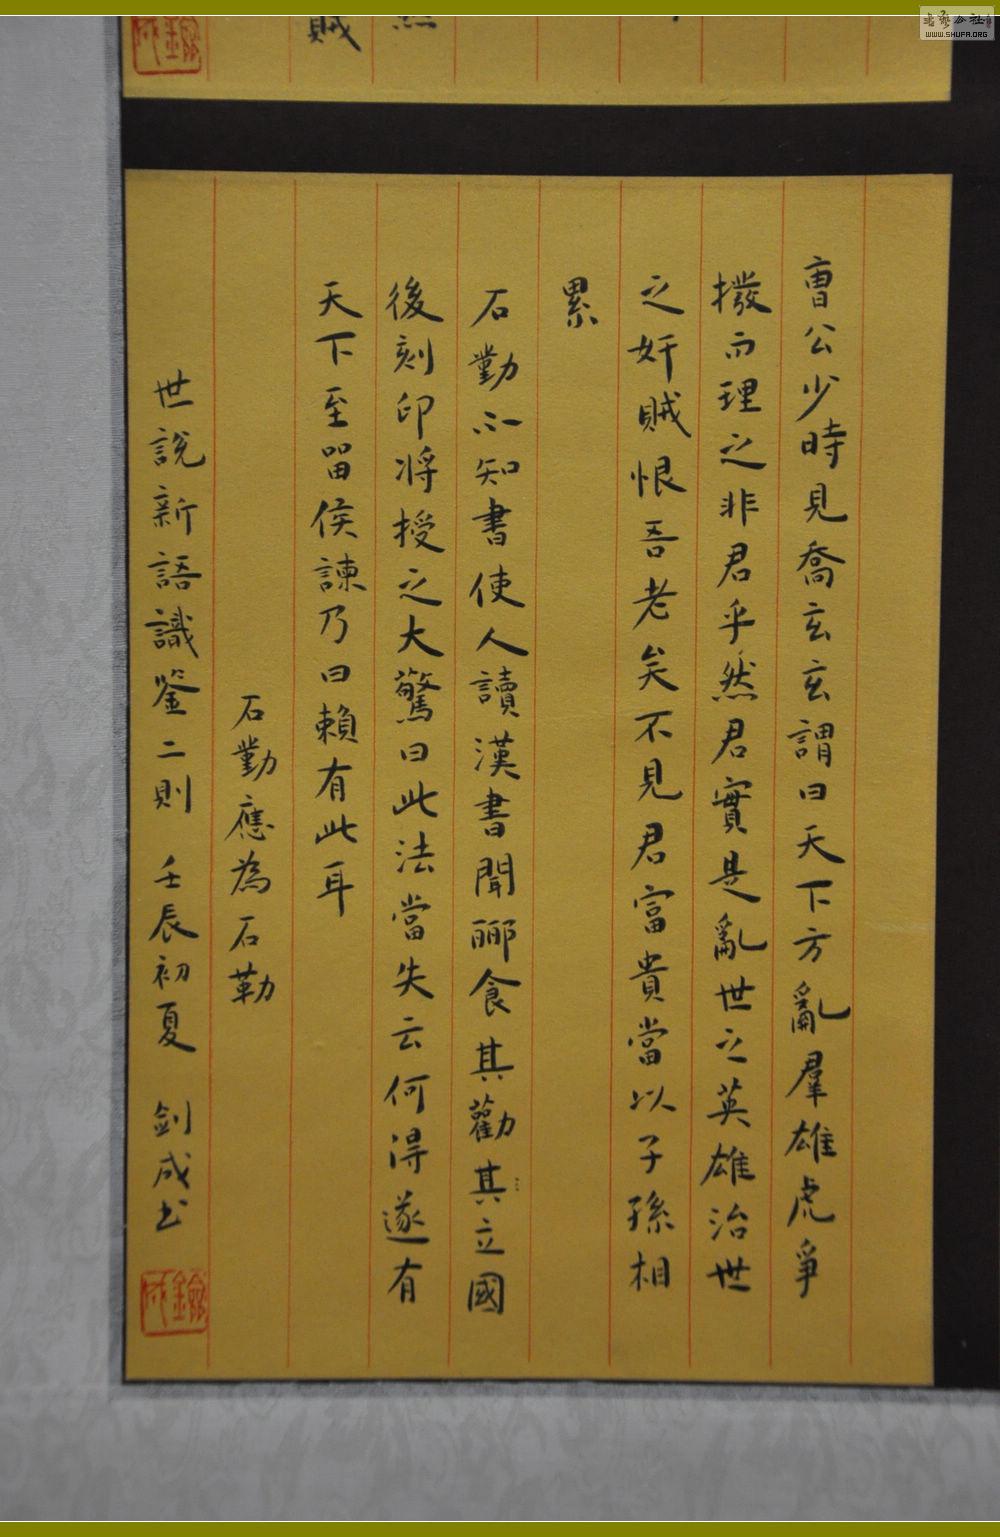 賊
曺公少時見喬玄玄謂曰天下方亂羣雄虎爭
撥而理之非君乎然君實是亂世之英雄治世
之奸賊恨吾老矣不見君富貴當以子孫相
累
石勤不知書使人讀漢書聞酈食其勸其立國
後刻印将授之大驚曰此法當失云何得遂有
天下至留侯諫乃曰賴有此耳
石勤應為石勒
世說新語識鉴二則 壬辰初夏 剑成书
WWW.SHUFA.ORG